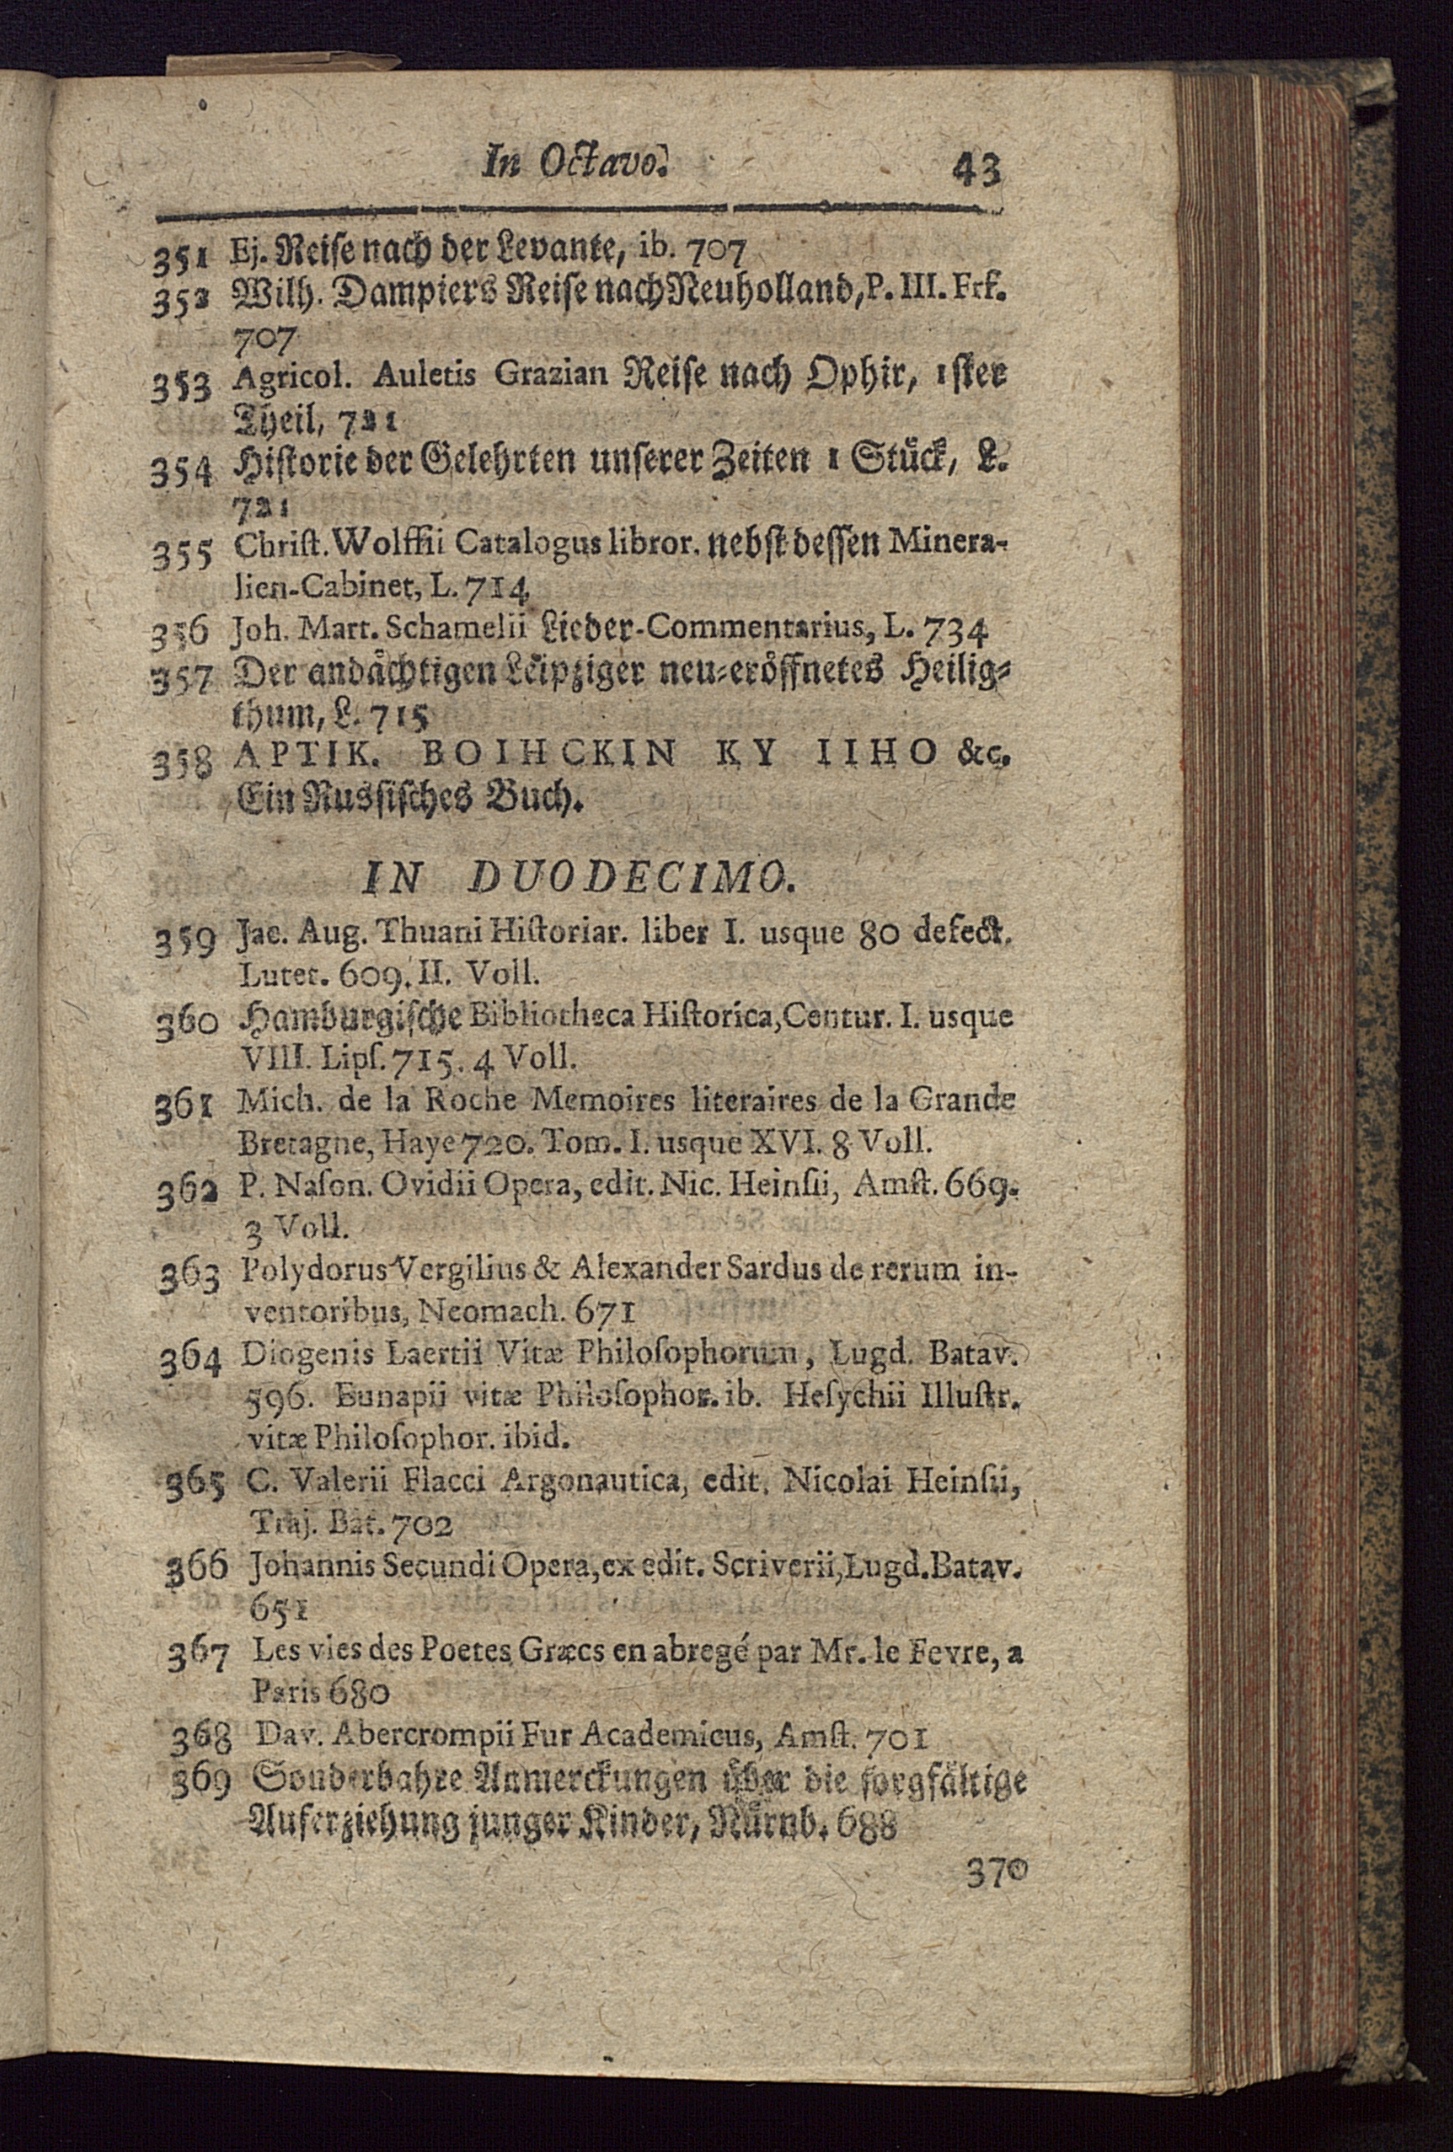 In Octavo.
43
351 Ej. Reise nach der Levante, ib. 707
352 Wilh. Dampiers Reise nach Neuholland, P. III. Frf.
707
353 Agricol. Auletis Grazian Reise nach Ophir, 1ster
Theil, 721
354 Historie der Gelehrten unserer Zeiten 1 Stück, L.
721
355 Chriſt. Wolffii Catalogus libror. nebst dessen Minera-
lien-Cabinet, L. 714
356 Joh. Mart. Schamelii Lieder-Commentarius, L. 734
357 Der andächtigen Leipziger neu-eröffnetes Heilig-
thum, L. 715
358 APTIK. BOIHCKIN KY IIHO &c.
Ein Russisches Buch.
IN DUODECIMO.
359 Jac. Aug. Thuani Hiſtoriar. liber I. usque 80 defect.
Lutet. 609. II. Voll.
360 Hamburgische Bibliotheca Hiſtorica, Centur. I. usque
VIII. Lipſ. 715. 4 Voll.
361 Mich. de la Roche Memoires literaires de la Grande
Bretagne, Haye 720. Tom. I. usque XVI. 8 Voll.
362 P. Naſon. Ovidii Opera, edit. Nic. Heinſii, Amſt. 669.
3 Voll.
363 Polydorus Vergilius & Alexander Sardus de rerum in-
ventoribus, Neomach. 671
364 Diogenis Laertii Vitæ Philoſophorum, Lugd. Batav.
596. Eunapii vitæ Philoſophor. ib. Heſychii Illuſtr.
vitæ Philoſophor. ibid.
365 C. Valerii Flacci Argonautica, edit. Nicolai Heinſii,
Traj. Bat. 702
366 Johannis Secundi Opera, ex edit. Scriverii, Lugd. Batav.
651
367 Les vies des Poetes Græcs en abregé par Mr. le Fevre, a
Paris 680
368 Dav. Abercrompii Fur Academicus, Amſt. 701
369 Sonderbahre Anmerckungen über die sorgfältige
Auferziehung junger Kinder, Nürnb. 688
370